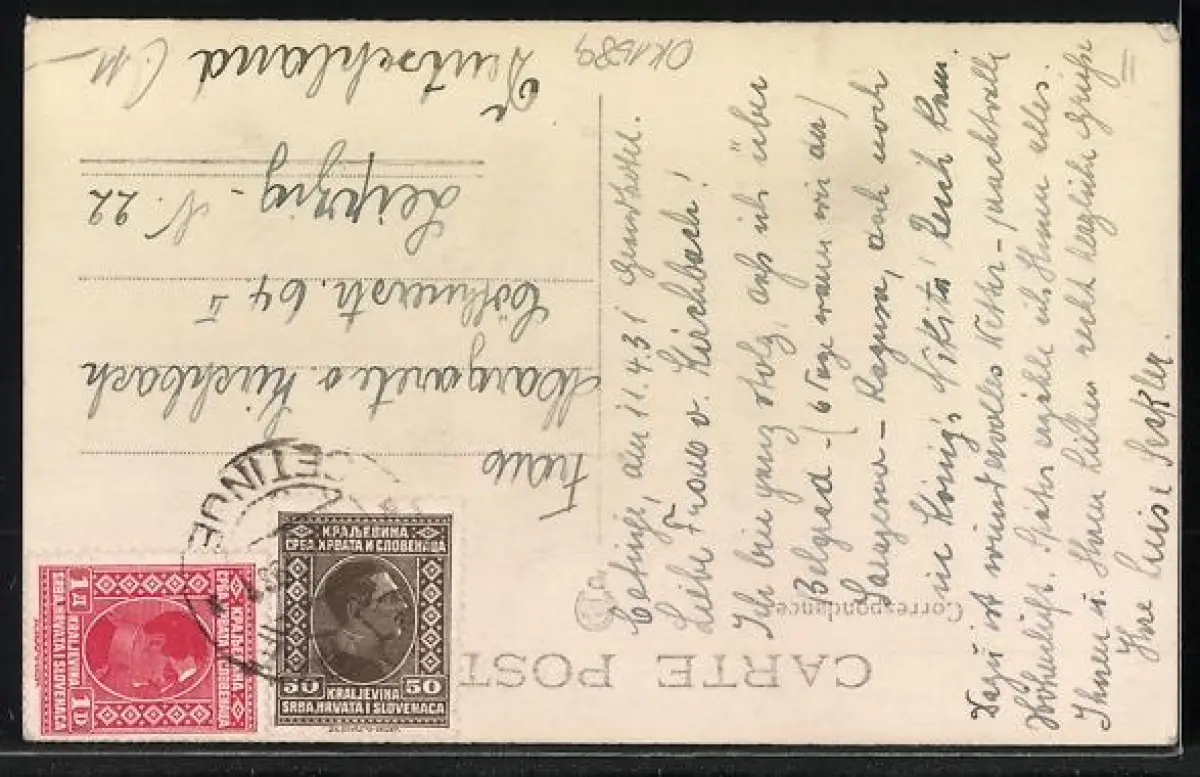 CARTE POST
Correspondance
Cetinje, den 11.4.31
Liebe Frau v. Kirchbach!
Ich bin ganz stolz, daß ich über
Belgrad - (6 Tage waren wir da)
Sarajevo - Ragusa, auch noch
in König's Nikita Reich kam.
Dazu ist wundervolles Wetter - prachtvolle
Höhenluft. Später erzähle ich Ihnen alles.
Ihnen u. Ihren Lieben recht herzliche Grüße
Ihre Luise
Frau
Margarete v. Kirchbach
Cöthnerstr. 64 II
Leipzig - N. 22
Deutschland
OK1589
CETINJE
КРАЉЕВИНА
СРБА, ХРВАТА И СЛОВЕНАЦА
50 50
KRALJEVINA
SRBA, HRVATA I SLOVENACA
КРАЉЕВИНА
СРБА, ХРВАТА И СЛОВЕНАЦА
1 Д 1 D
KRALJEVINA
SRBA, HRVATA I SLOVENACA